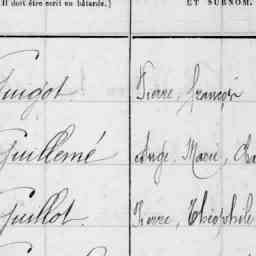 Il doit être écrit en bâtarde.) ET SURNOM.
Guigot Pierre, François
Guillemé Ange, Marie,
Guillot Pierre, Théophile